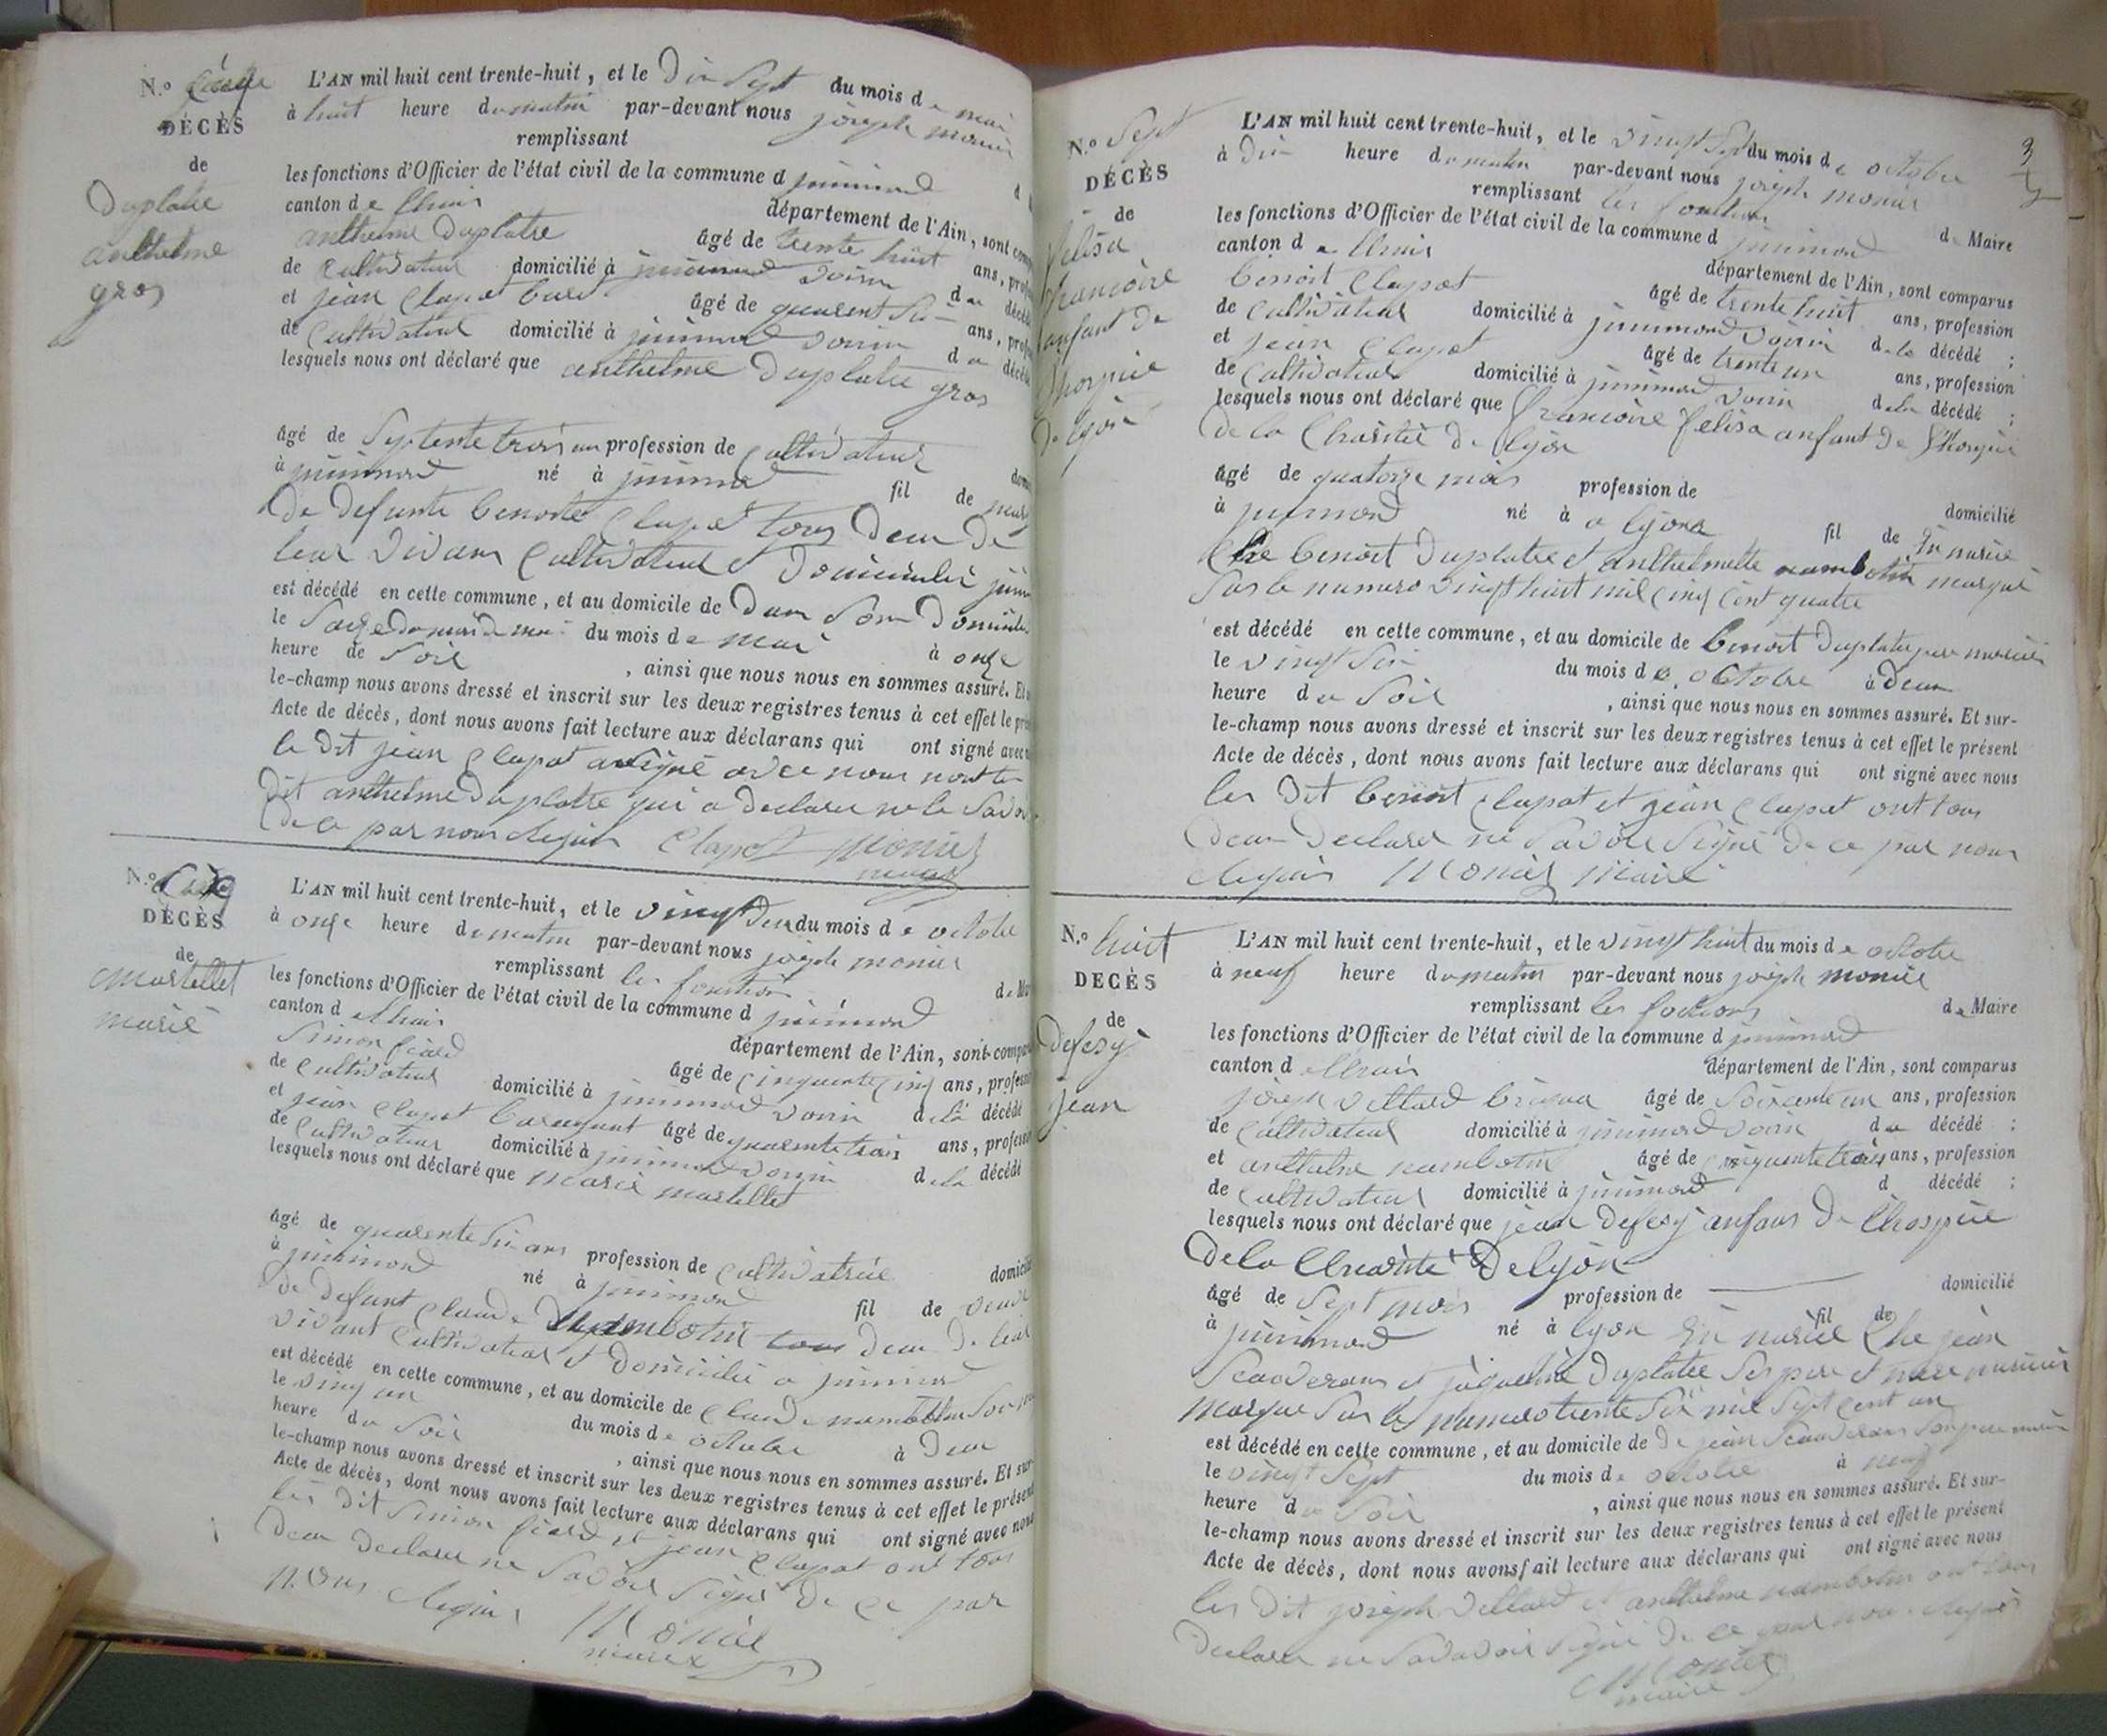 N.º
DÉCÈS
de
Duplatre
anthelme
gros
L'AN mil huit cent trente-huit, et le Dix Sept du mois de mai
à huit heure du matin par-devant nous joseph monier
remplissant
les fonctions d'Officier de l'état civil de la commune d
canton de Lhuis département de l'Ain, sont comp
anthelme Duplatre âgé de trente huit ans, prof
de Cultivateur domicilié à voisin du décédé
et jean Clapot âgé de quarent six ans, prof
de Cultivateur domicilié à voisin du décédé
lesquels nous ont déclaré que anthelme Duplatre gros
âgé de Septente trois an profession de Cultivateur dom
à né à fil de
De defunte benoite Clapot tous Deux De
leur vivans Cultivateur et Domiciliés
est décédé en cette commune, et au domicile de Dans Son Domicile
le du mois de mai à onze
heure de Soir , ainsi que nous nous en sommes assuré. Et
le-champ nous avons dressé et inscrit sur les deux registres tenus à cet effet le pré
Acte de décès, dont nous avons fait lecture aux déclarans qui ont signé avec
le Dit jean Clapot a Signé avec nous
Dit anthelme Duplatre qui a Declarer ne le Savoir
De ce par nous Requis Clapot Monier
maire
N.º
DÉCÈS
de
Martellet
marie
L'AN mil huit cent trente-huit, et le vingt Deux du mois de octobre
à onze heure du matin par-devant nous joseph monier
remplissant les fonction de M
les fonctions d'Officier de l'état civil de la commune d
canton de Lhuis département de l'Ain, sont compa
Simon âgé de Cinquente Cinq ans, profess
de Cultivateur domicilié à voisin de la décédé
et jean Clapot âgé de quarente trois ans, profess
de Cultivateur domicilié à voisin de la décédé
lesquels nous ont déclaré que marie martellet
âgé de quarente Six ans profession de Cultivatrice domicil
à né à fil de
De defunt Claude nambotin tous Deux De leur
vivant Cultivateur et Domiciliés a
est décédé en cette commune, et au domicile de Claude nambotin
le vingt un du mois de octobre à Deux
heure du Soir , ainsi que nous nous en sommes assuré. Et sur-
le-champ nous avons dressé et inscrit sur les deux registres tenus à cet effet le présent
Acte de décès, dont nous avons fait lecture aux déclarans qui ont signé avec nous
les Dit Simon et jean Clapot ont tous
Deux Declarer ne Savoir Signé De ce par
nous Requis Monier
maire
N.º Sept
DÉCÈS
de
felisa
francoise
enfant de
lhospice
De lyon
L'AN mil huit cent trente-huit, et le vingt Sept du mois de octobre
à Dix heure du matin par-devant nous joseph monier
remplissant les fonctions de Maire
les fonctions d'Officier de l'état civil de la commune d
canton de Lhuis département de l'Ain, sont comparus
benoit Clapot âgé de trente huit ans, profession
de Cultivateur domicilié à voisin de la décédé ;
et jean Clapot âgé de trente un ans, profession
de Cultivateur domicilié à voisin de la décédé ;
lesquels nous ont déclaré que francoise felisa enfant de lhospice
De la Charitée De lyon
âgé de quatorze mois profession de domicilié
à né à a lyon fil de En nourice
Che benoit Duplatre et anthelmette nambotin marqué
Sur le numero vingt huit mil cinq Cent quatre
est décédé en cette commune, et au domicile de benoit Duplatre pere nouricier
le vingt Six du mois de octobre à Deux
heure du Soir , ainsi que nous nous en sommes assuré. Et sur-
le-champ nous avons dressé et inscrit sur les deux registres tenus à cet effet le présent
Acte de décès, dont nous avons fait lecture aux déclarans qui ont signé avec nous
les Dit benoit Clapot et jean Clapot ont tous
Deux Declarer ne Savoir Signé De ce par nous
Requis Monier Maire
N.º huit
DECÈS
de
Defesy
jean
L'AN mil huit cent trente-huit, et le vingt huit du mois de octobre
à neuf heure du matin par-devant nous joseph monier
remplissant les fonctions de Maire
les fonctions d'Officier de l'état civil de la commune d
canton de Lhuis département de l'Ain, sont comparus
joseph vettard âgé de Soixente un ans, profession
de Cultivateur domicilié à voisin du décédé ;
et anthelme nambotin âgé de Cinquente trois ans, profession
de Cultivateur domicilié à d décédé ;
lesquels nous ont déclaré que jean Defesy enfans De lhospice
De la Charitté De lyon
âgé de Sept mois profession de domicilié
à né à lyon En nourice fil de Che jean
et Duplatre Ses pere et mere nouricier
Marque Sur le Numero trente Six mil Sept Cent un
est décédé en cette commune, et au domicile de De jean Son pere
le vingt Sept du mois de octobre à neuf
heure du Soir , ainsi que nous nous en sommes assuré. Et sur-
le-champ nous avons dressé et inscrit sur les deux registres tenus à cet effet le présent
Acte de décès, dont nous avons fait lecture aux déclarans qui ont signé avec nous
les Dit joseph vettard et anthelme nambotin ont tous
Declarer ne Savavoir Signé De ce par nous Requis
Monier
maire